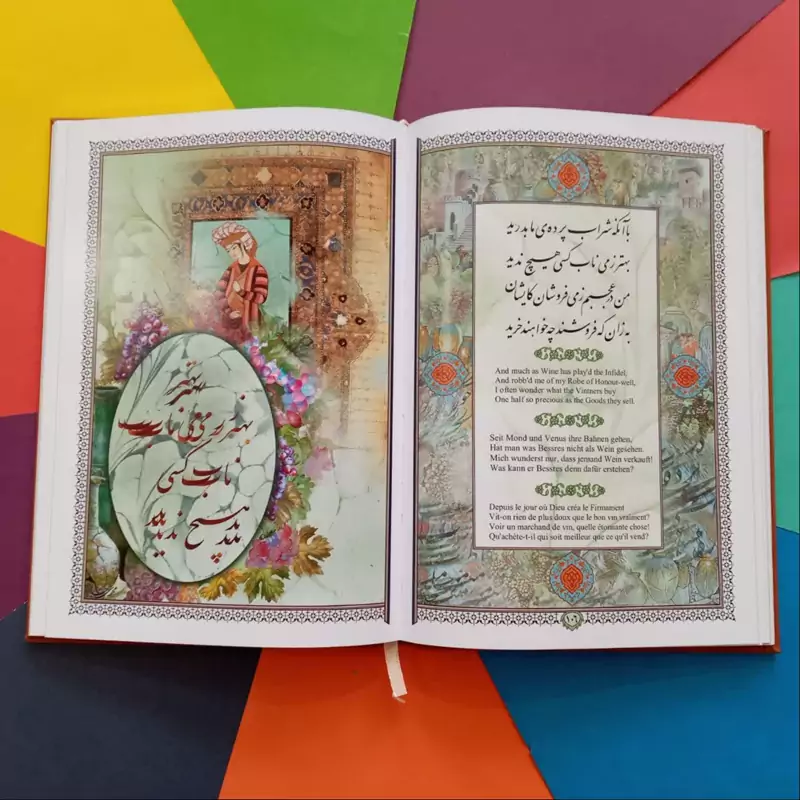 با آنکه شراب پرده‌ی ما بدرید
بهتر ز می ناب کسی هیچ ندید
من در عجبم ز می فروشان کایشان
به زان که فروشند چه خواهند خرید
And much as Wine has play'd the Infidel;
And robb'd me of my Robe of Honour-well,
I often wonder what the Vintners buy
One half so precious as the Goods they sell.
Seit Mond und Venus ihre Bahnen gehen,
Hat man was Bessres nicht als Wein gesehen.
Mich wunderst nur, dass jemand Wein verkauft!
Was kann er Besstes denn dafür erstehen?
Depuis le jour où Dieu créa le Firmament
Vit-on rien de plus doux que le bon vin vraiment?
Voir un marchand de vin, quelle étonnante chose!
Qu'achète-t-il qui soit meilleur que ce qu'il vend?
۱۰۶
بهتر
بهتر ز می ناب
ناب کسی
هیچ ندید